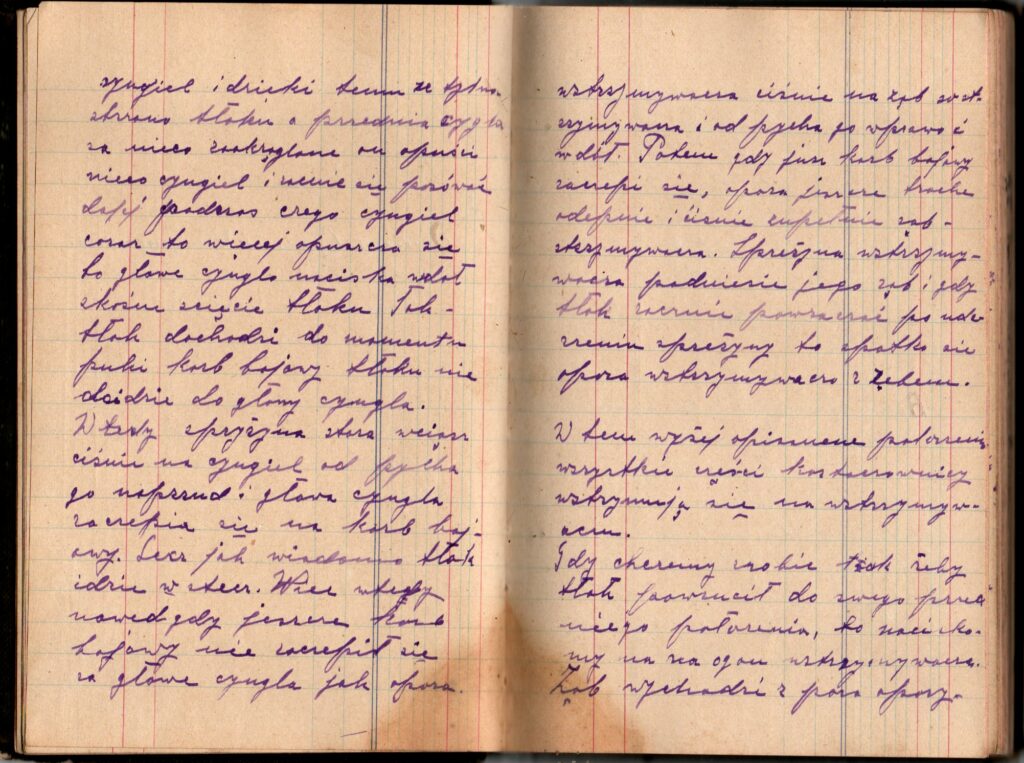 cyngiel i dzieki temu ze tylna
strona tłoku a przednia cyngla
sa nieco zaokrąglone on opuści
nieco cyngiel i zacnie się posówać
dalej podczas czego cyngiel
coraz to wiecej opuszcza się
bo głowe cyngla naciska wdół
skośne ścięcie tłoku Tak-
tłok dochodzi do momentu
puki karb bojowy tłoku nie
dcidzie do głowy cyngla.
Wtedy sprężyna stara wciąsz
ciśnie na cyngiel od pycha
go naprzud i głowa cyngla
zaczepia się na karb boj-
owy. Lecz jak wiadomo tłok
idzie w stecz. Wiec wtedy
nawed gdy jeszcze karb
bojowy nie zaczepił się
za głowe cyngla jak opora.
wztrzymywacza ciśnie na ząb wst-
rzymywacza i od pycha go wprawo i
wdół. Potem gdy jusz karb bojowy
zaczepi się, opora jeszcze troche
odepnie i ciśnie zupełnie ząb-
stszymywacza. Sprężyna wztrzymy-
wacza podniesie jego ząb i gdy
tłok zacznie powracać po ude-
rzeniu sprężyny to spotka sie
opora wztrzymywacza z zębem.
W tem wyżej opisanem położeniu
wszystkie cześci kostaerownicy
wstrzymują się na wztrzymyw-
aczu.
Gdy chcemy zrobic tak żeby
tłok powrucił do swego przed
niego położenia, to nacisko-
my na na ogon wztrzymywacza.
Ząb wychodzi z poza opory-